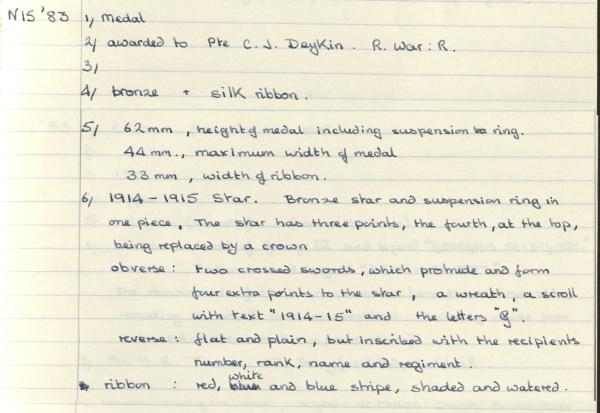 N15 '83 1/ medal
2/ awarded to Pte C. J. Daykin. R. War: R.
3/
4/ bronze + silk ribbon.
5/ 62mm, height of medal including suspension ring.
44 mm., maximum width of medal
33 mm, width of ribbon.
6/ 1914-1915 Star. Bronze star and suspension ring in
one piece. The star has three points, the fourth, at the top,
being replaced by a crown
obverse: two crossed swords, which protrude and form
four extra points to the star, a wreath, a scroll
with text "1914-15" and the letters "G".
reverse: flat and plain, but inscribed with the recipients
number, rank, name and regiment.
ribbon: red, white and blue stripe, shaded and watered.